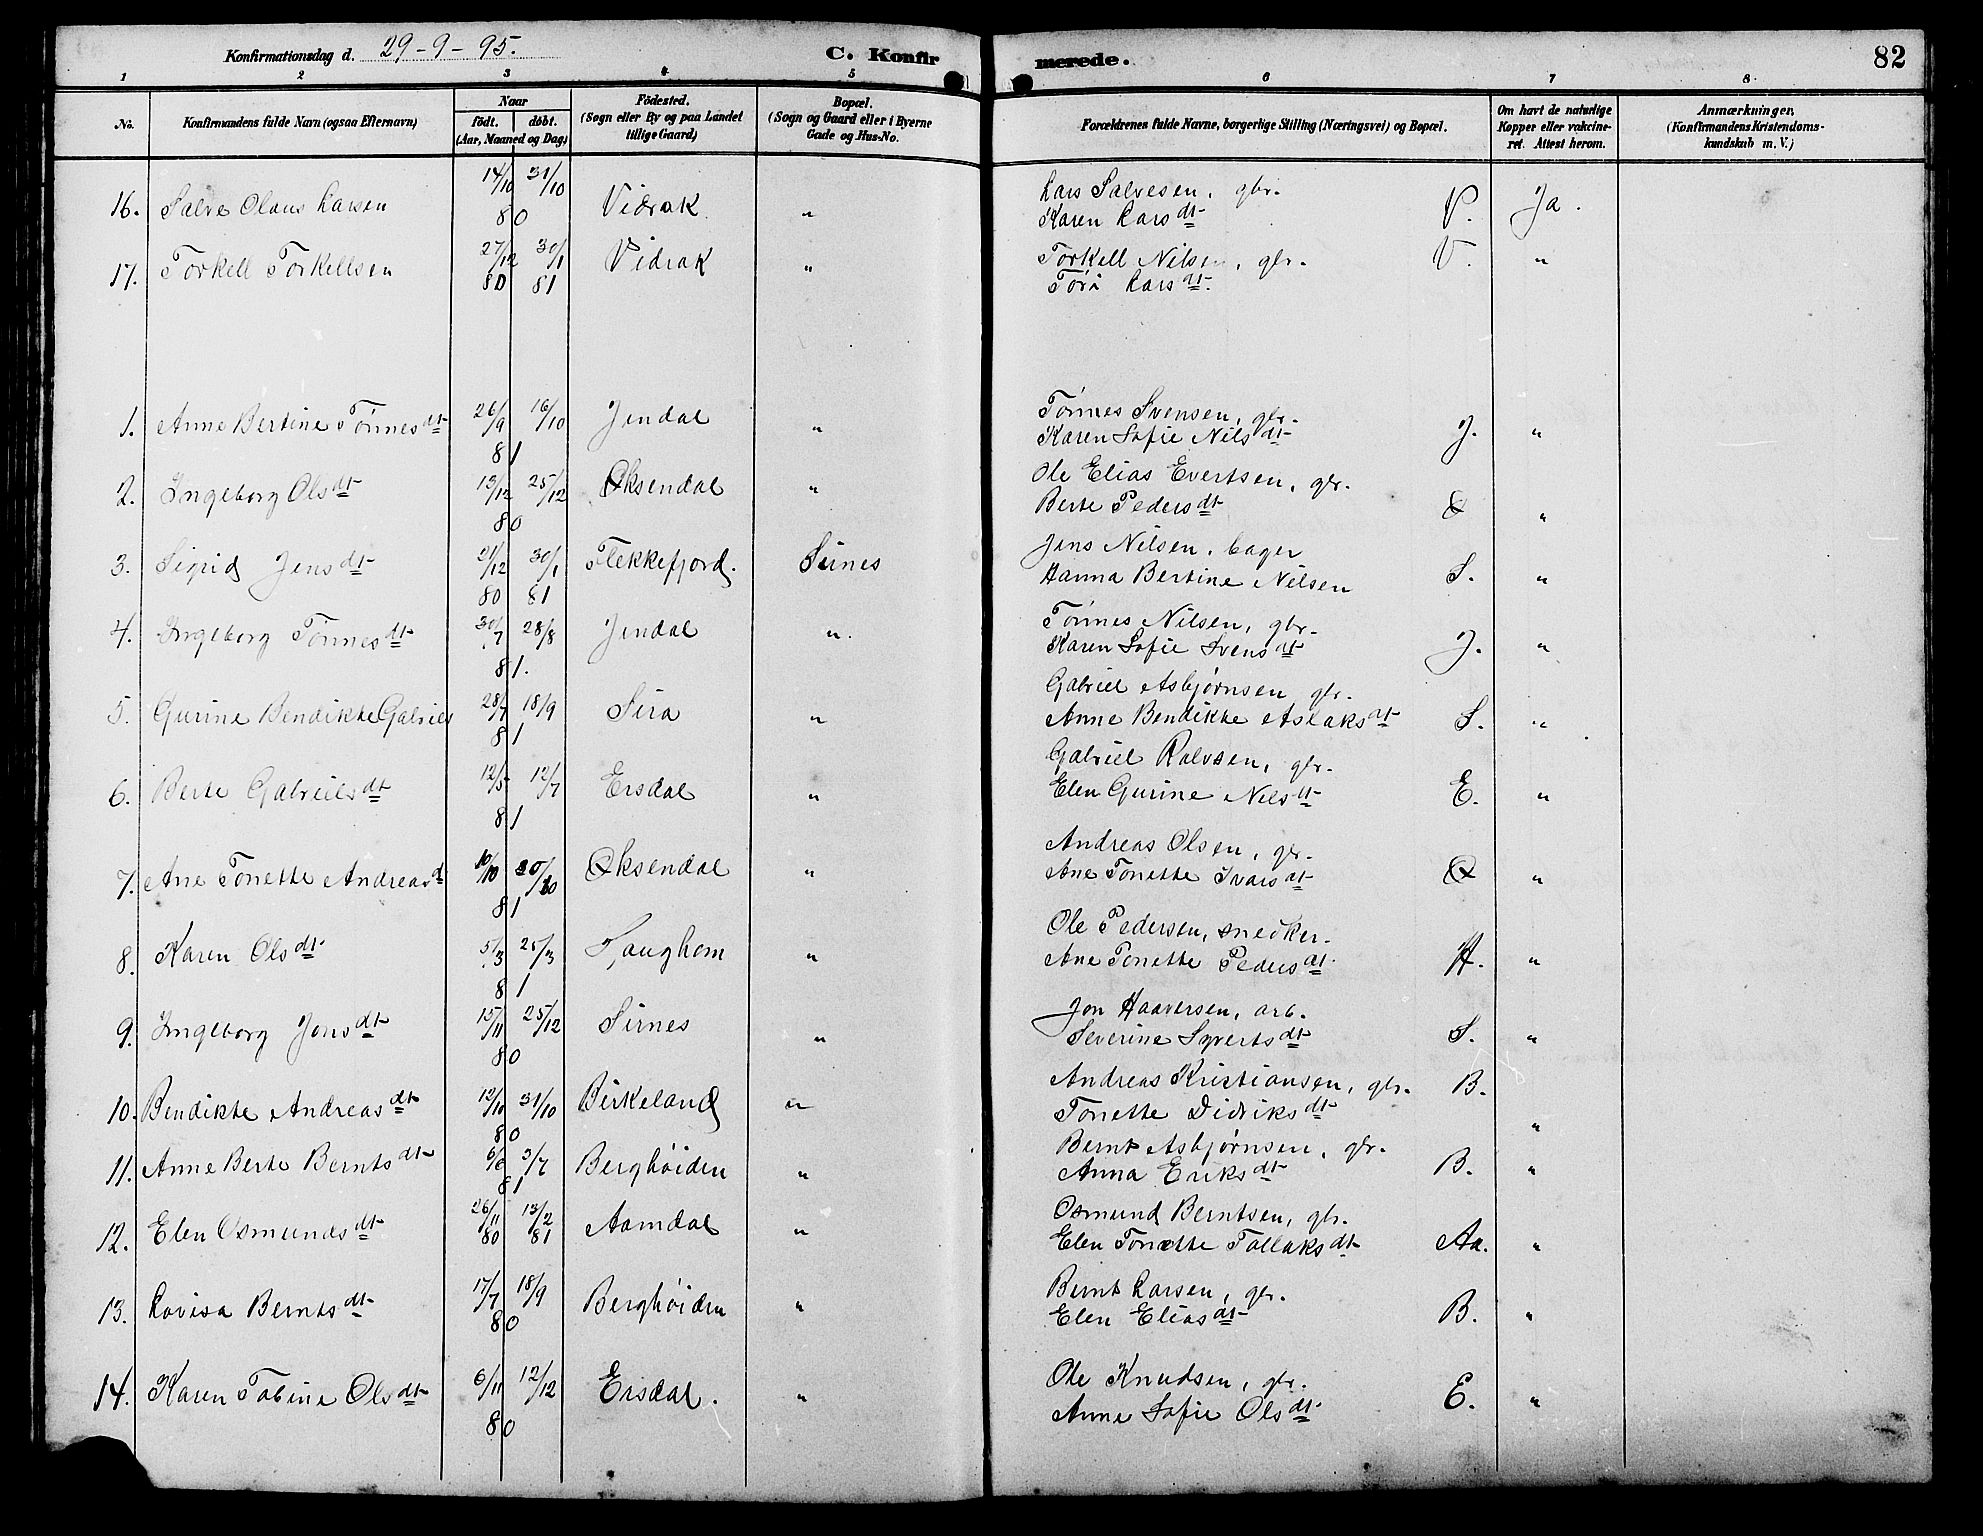 Konfirmationsdag d. 29-9-95.
C. Konfirmerede.
82
1 2 3 4 5 6 7 8
No.
Konfirmandens fulde Navn (ogsaa Efternavn)
Naar
födt. döbt.
(Aar, Maaned og Dag)
Födested.
(Sogn eller By og paa Landet
tillige Gaard)
Bopæl.
(Sogn og Gaard eller i Byerne
Gade og Hus-No.
Forældrenes fulde Navne, borgerlige Stilling (Næringsvei) og Bopæl.
Om havt de naturlige
Kopper eller vakcine-
ret. Attest herom.
Anmærkninger,
(Konfirmandens Kristendoms-
kundskab m. V.)
16. Salve Olaus Larsen 14/10 31/10 80 Vidrak " Lars Salvesen, gbr. V. Ja.
Karen Larsdt
17. Torkell Torkellsen 27/12 80 30/1 81 Vidrak " Torkell Nilsen, gbr. V. "
Töri Larsdt.
1. Anne Bertine Tönnesdt 26/9 16/10 81 Jendal " Tönnes Svensen, gbr.
Karen Sofie Nilsdt J. "
2. Ingeborg Olsdt 13/12 25/12 80 Øksendal " Ole Elias Evertsen, gbr.
Berte Pedersdt Ø "
3. Sigrid Jensdt 21/12 80 30/1 81 Flekkefjord. Sirnes Jens Nilsen, bager
Hanna Bertine Nilsen S. "
4. Ingeborg Tönnesdt 30/7 28/8 81. Jendal " Tönnes Nilsen, gbr.
Karen Sofie Svensdt J. "
5. Gurine Bendikte Gabriels 28/7 18/9 81 Sira " Gabriel Asbjørnsen gbr.
Anne Bendikte Aslaksdt S. "
6. Berte Gabrielsdt 12/5 12/7 81 Ersdal " Gabriel Ralvsen, gbr.
Elen Gurine Nilsdt E. "
7. Ane Tonette Andreasd 10/10 30/10 81 Øksendal " Andreas Olsen, gbr.
Ane Tonette Ivarsdt Ø "
8. Karen Olsdt 5/3 25/3 81 " Ole Pedersen, snedker.
Ane Tonette Pedersdt. H. "
9. Ingeborg Jonsdt 15/11 25/12 80 Sirnes " Jon Haaversen, arb.
Severine Syvertsdt S. "
10. Bendikte Andreasdt 12/10 31/10 80 Birkeland " Andreas Kristiansen, gbr. B.
Tonette Didriksdt "
11. Anne Berte Berntsdt 6/6 3/7 81 Berghöiden " Bernt Asbjørnsen, gbr.
Anna Eriksdt B. "
12. Elen Osmundsdt 26/11 80 13/2 81 Aamdal " Osmund Berntsen, gbr.
Elen Tonette Tollaksdt Aa. "
13. Lovisa Berntsdt 17/7 18/9 80 Berghöiden " Bernt Larsen, gbr.
Elen Eliasdt B. "
14. Karen Tobine Olsdt 6/11 12/12 80 Ersdal. " Ole Knudsen, gbr.
Anne Sofie Olsdt E. "